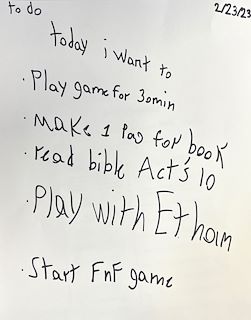 to do
2/23/23
today i want to
· Play game for 30min
· make 1 Pag for book
· read bible Act's 10
· Play with Ethan
· Start FnF game